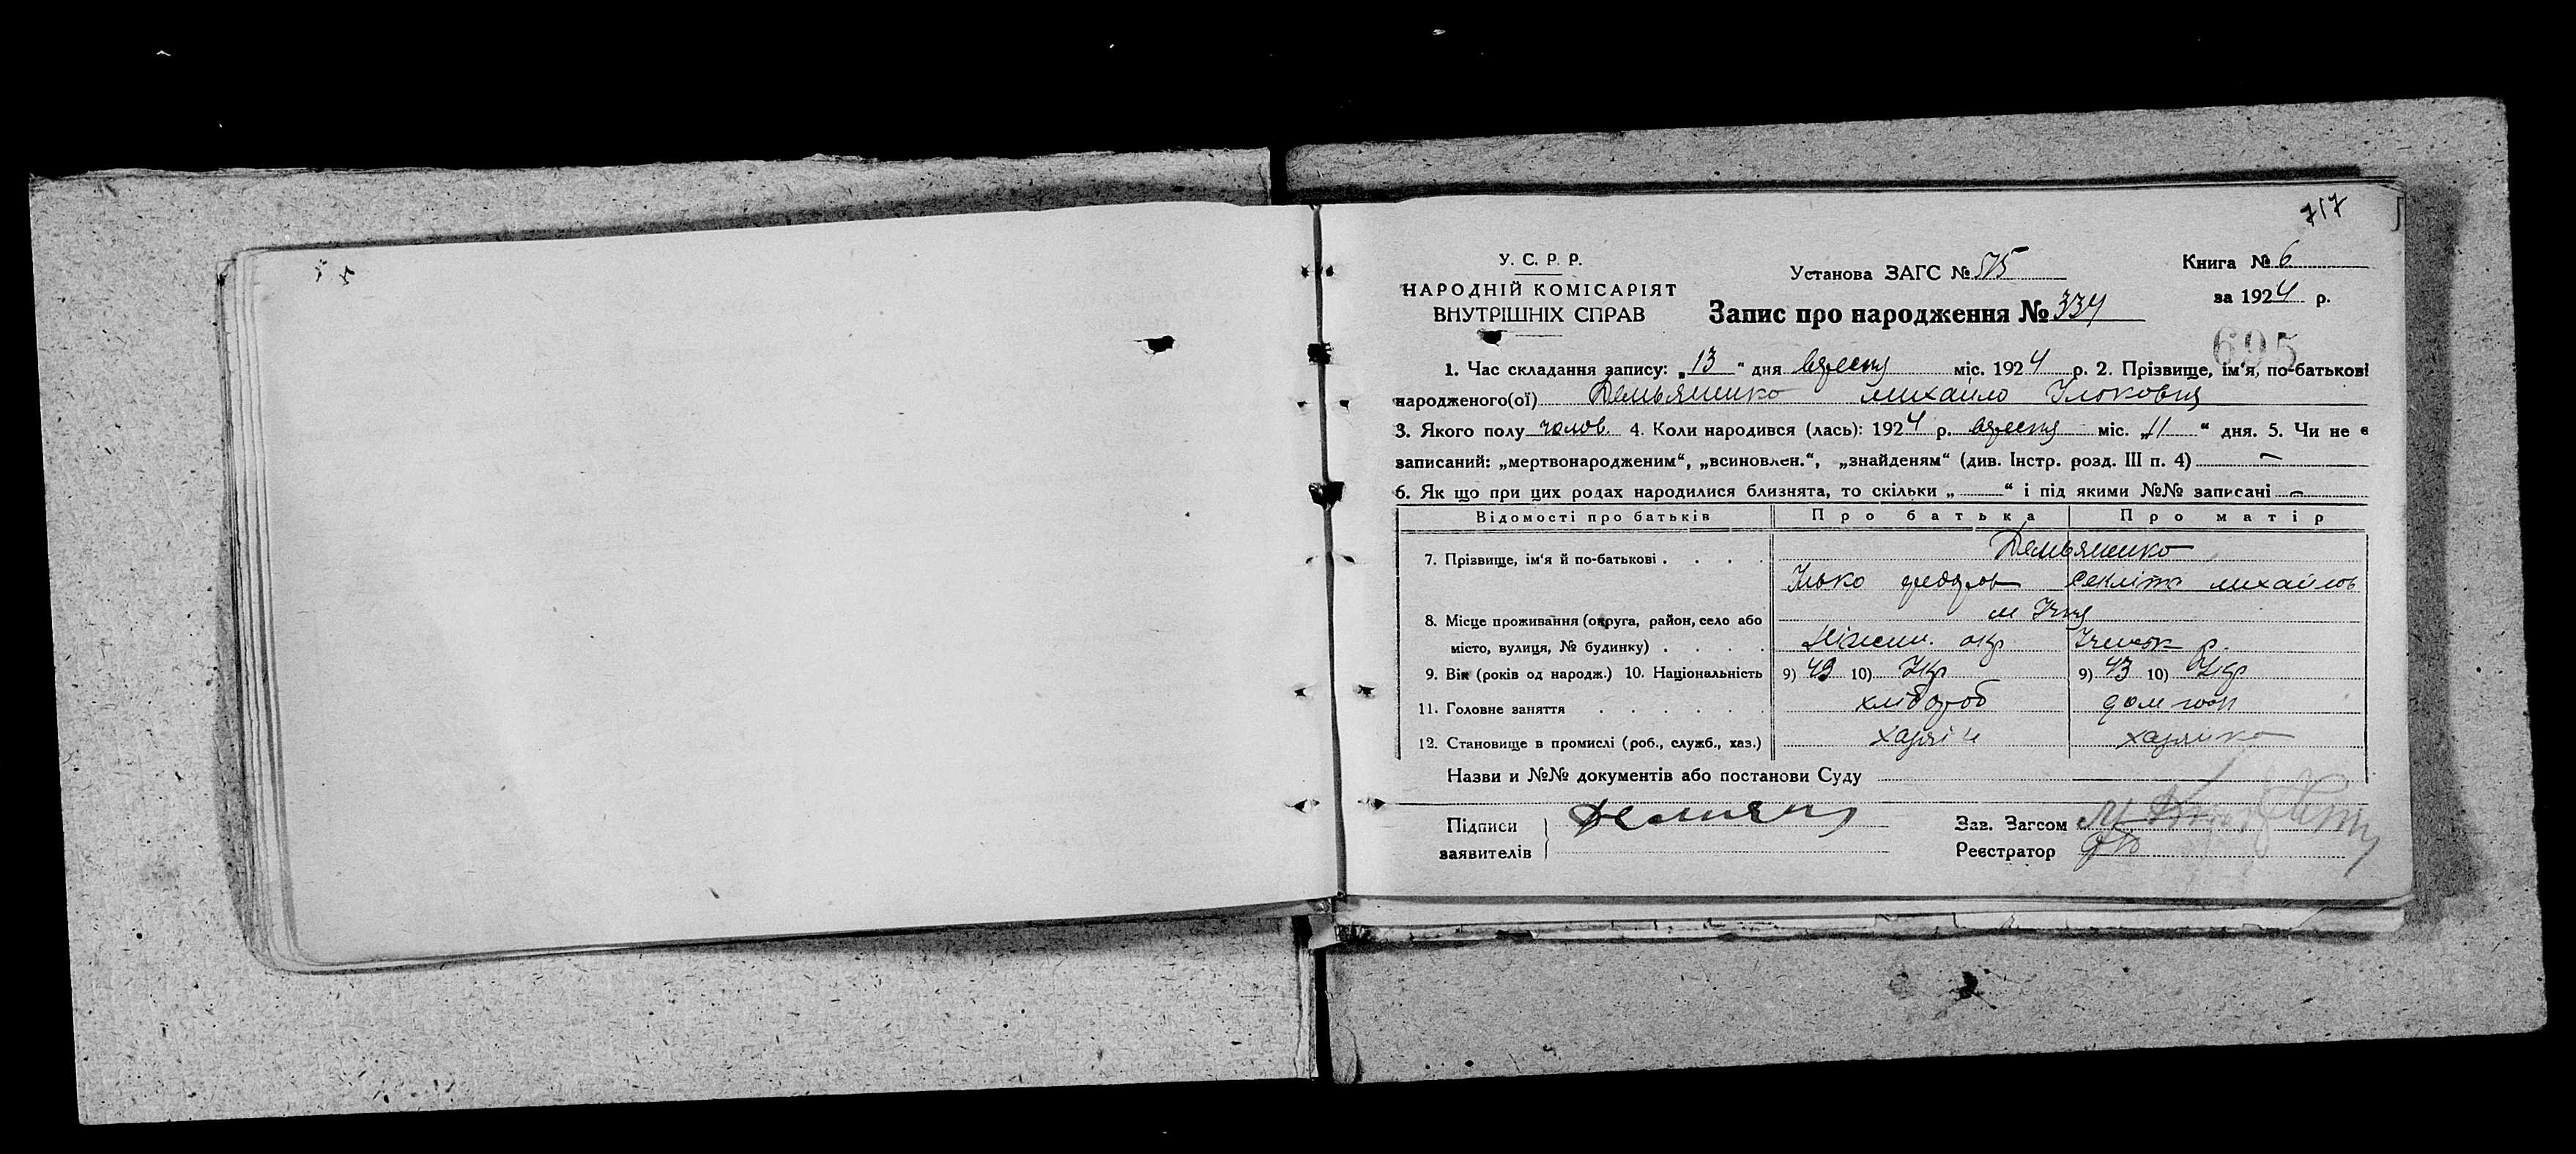 717
У. С. Р. Р.
НАРОДНІЙ КОМІСАРІЯТ
ВНУТРІШНІХ СПРАВ
Установа ЗАГС № 575
Книга № 6
за 1924 р.
Запис про народження № 334
695
1. Час складання запису: „13“ дня вересня міс. 1924 р. 2. Прізвище, ім‘я, по-батькові
народженого(ої) Демьяненко Михайло Ільковия
3. Якого полу чолов. 4. Коли народився (лась): 1924 р. вересня міс. „11“ дня. 5. Чи не є
записаний: „мертвонародженим“, „всиновлен.“, „знайденям“ (див. Інстр. розд. III п. 4) —
6. Як що при цих родах народилися близнята, то скільки „ “ і під якими №№ записані —
Відомості про батьків Про батька Про матір
7. Прізвище, ім‘я й по-батькові . . . . Демьяненко
Ілько федор михайлов
8. Місце проживання (округа, район, село або м Ічня
місто, вулиця, № будинку) . . . . Ніжин. окр Ічнянск р.
9. Вік (років од народж.) 10. Національність 9) 49 10) Укр 9) 43 10) Укр
11. Головне заняття . . . . . . хлібороб дом госп
12. Становище в промислі (роб., служб., хаз.) хазяін хазяйка
Назви и №№ документів або постанови Суду
Підписи
заявителів
Зав. Загсом
Реєстратор